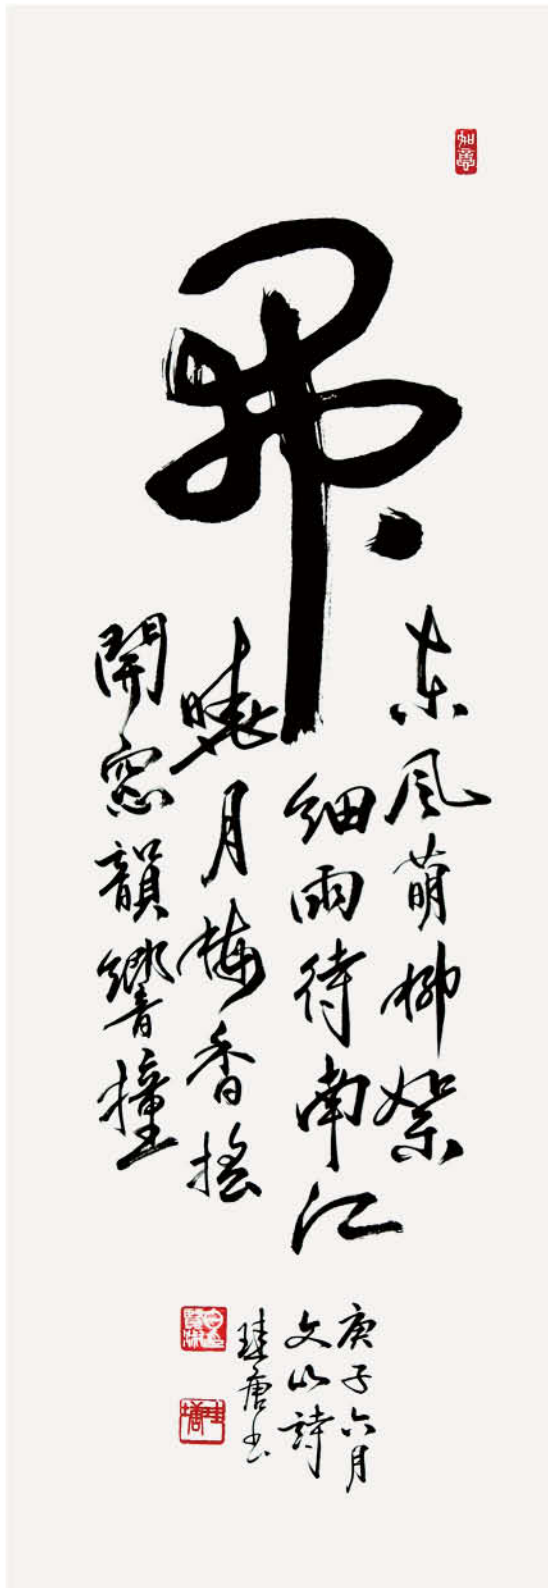 如意
东风萌柳絮
细雨待南江
晓月梅香摇
開窓韻響撞
庚子六月
文山詩
珪唐书